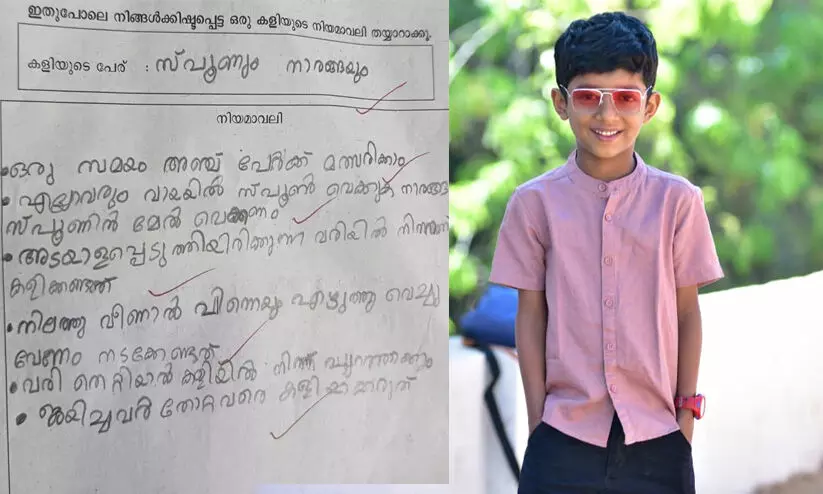 ഇതുപോലെ നിങ്ങൾക്കിഷ്ടപ്പെട്ട ഒരു കളിയുടെ നിയമാവലി തയ്യാറാക്കൂ.
കളിയുടെ പേര് : സ്പൂണും നാരങ്ങയും
നിയമാവലി
•ഒരു സമയം അഞ്ച് പേർക്ക് മത്സരിക്കാം
• എല്ലാവരും വായയിൽ സ്പൂൺ വെക്കുക നാരങ്ങ
സ്പൂണിൻ മേൽ വെക്കണം
•അടയാളപ്പെടുത്തിയിരിക്കുന്ന വരിയിൽ
കളിക്കേണ്ടത്
•നിലത്തു വീണാൽ പിന്നെയും എടുത്തു വെച്ചു
വേണം നടക്കേണ്ടത്
•വരി തെറ്റിയാൽ കളിയിൽ നിന്ന് പുറത്താക്കണം
• ജയിച്ചവർ തോറ്റവരെ കളിയാക്കരുത്